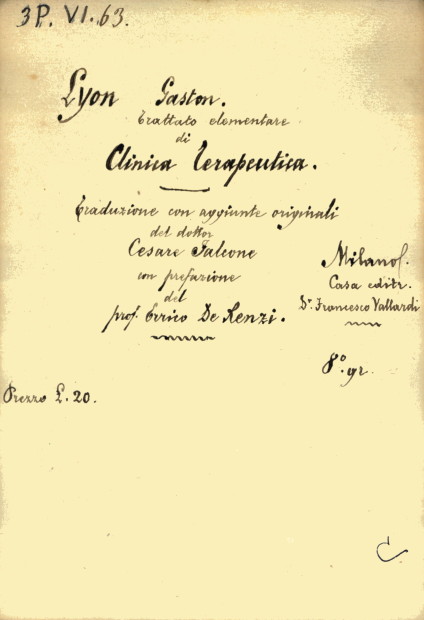 3P. VI. 63.
Lyon Gaston.
Trattato elementare
di
Clinica Terapeutica.
Traduzione con aggiunte originali
del dottor
Cesare Falcone
con prefazione
del
prof. Errico De Renzi.
Milano
Casa editr.
Dr. Francesco Vallardi
8º. gr.
Prezzo L. 20.
C